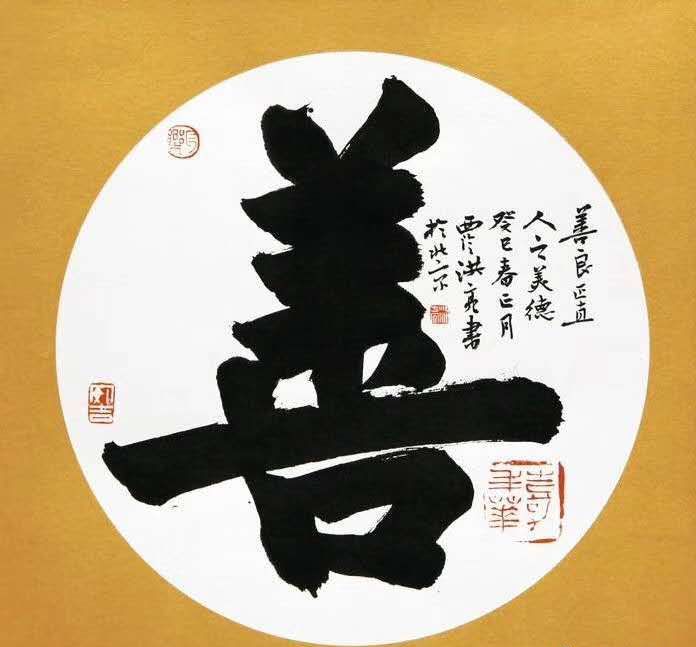 善
善良正直
人之美德
癸巳春正月
洪亮書
於北京